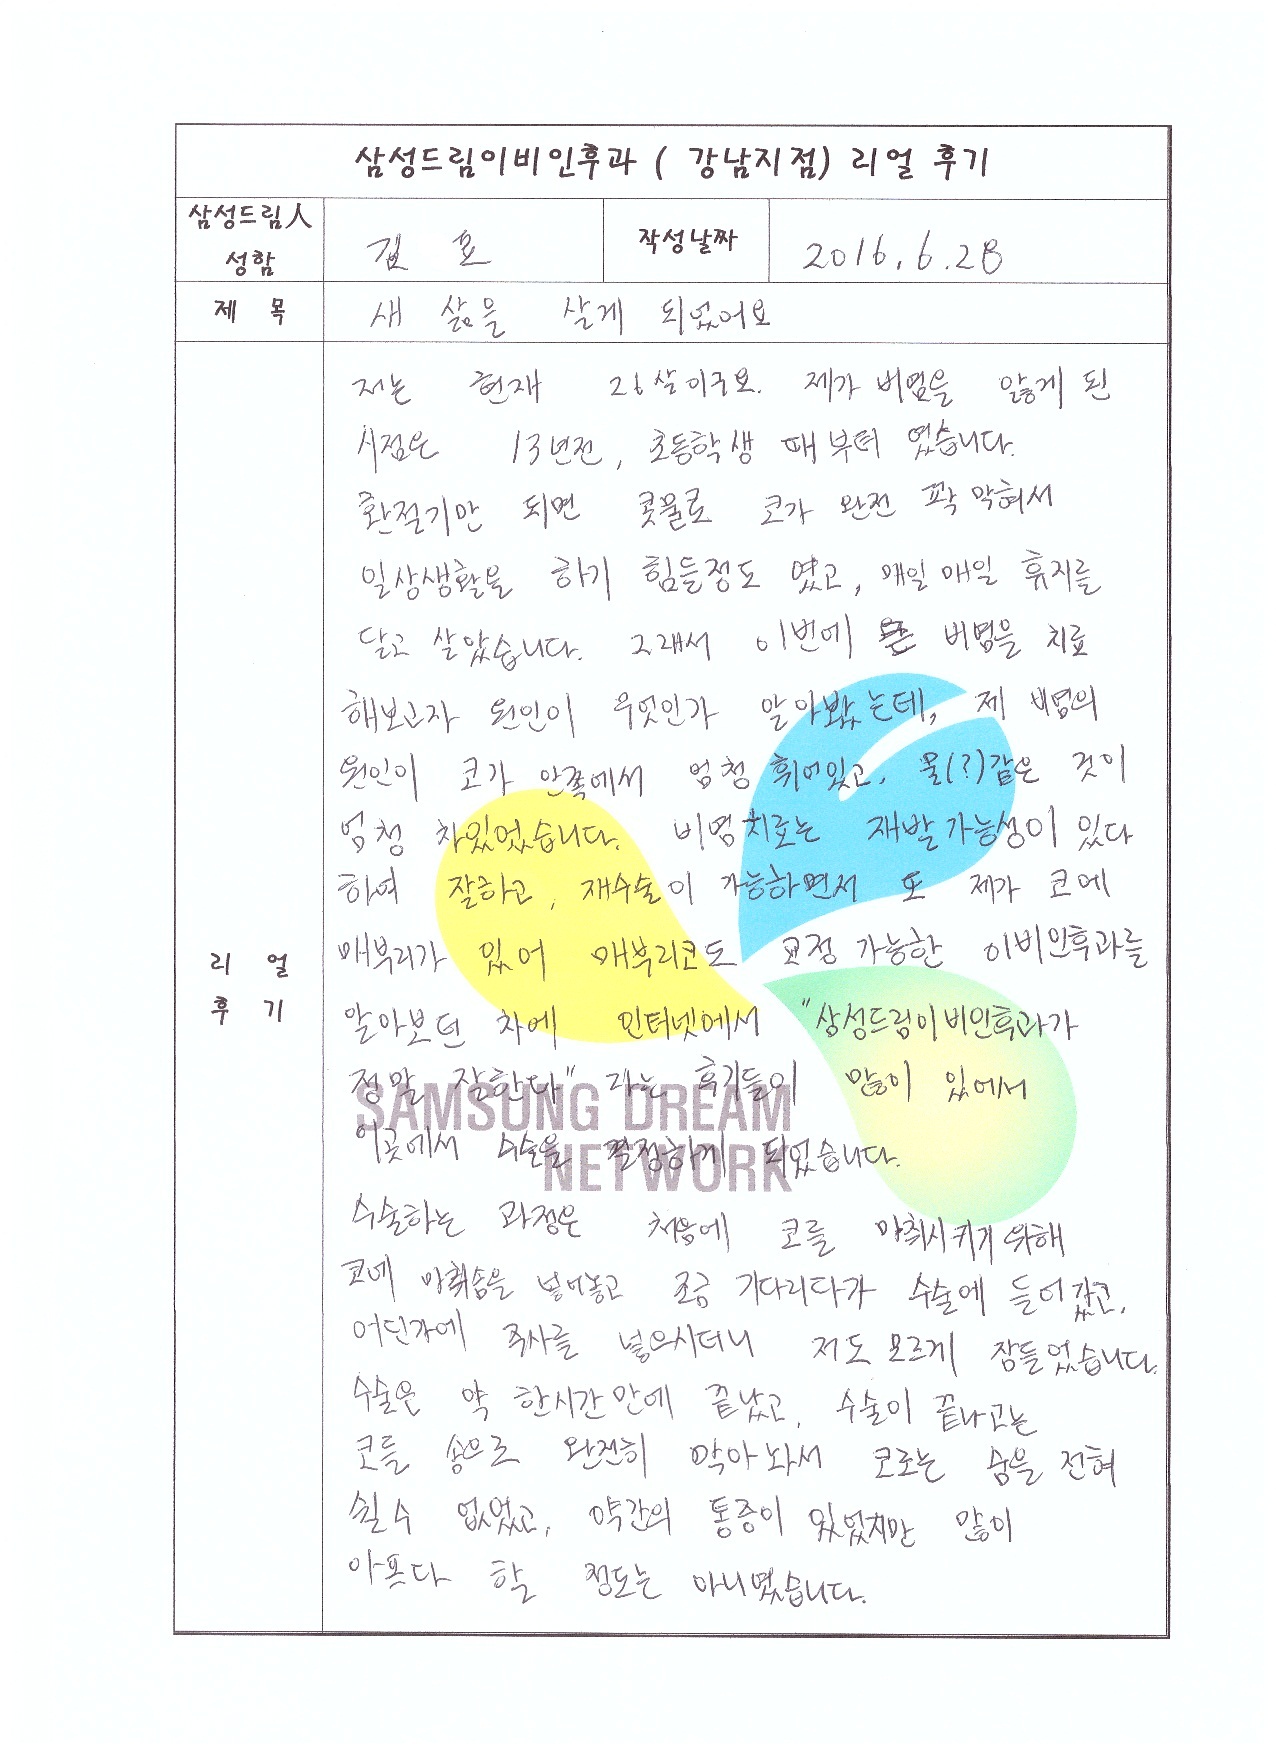 삼성드림이비인후과 ( 강남지점) 리얼 후기
삼성드림人
성함
김 효
작성날짜
2016. 6. 28
제 목
새 삶을 살게 되었어요
리 얼
후 기
저는 현재 26살이구요. 제가 비염을 앓게 된
시점은 13년전, 초등학생 때부터 였습니다.
환절기만 되면 콧물로 코가 완전 꽉 막혀서
일상생활을 하기 힘들정도 였고, 매일매일 휴지를
달고 살았습니다. 그래서 이번에 비염을 치료
해보고자 원인이 무엇인가 알아봤는데, 제 비염의
원인이 코가 안쪽에서 엄청 휘어있고, 물(?)같은 것이
엄청 차있었습니다. 비염치료는 재발가능성이 있다
하여 잘하고, 재수술이 가능하면서 또 제가 코에
매부리가 있어 매부리코도 교정 가능한 이비인후과를
알아보던 차에 인터넷에서 "삼성드림이비인후과가
정말 잘한다" 라는 후기들이 많이 있어서
이곳에서 수술을 결정하게 되었습니다.
SAMSUNG DREAM
NETWORK
수술하는 과정은 처음에 코를 마취시키기 위해
코에 마취솜을 넣어놓고 조금 기다리다가 수술에 들어갔고,
어딘가에 주사를 넣으시더니 저도 모르게 잠들었습니다.
수술은 약 한시간 안에 끝났고, 수술이 끝나고는
코를 솜으로 완전히 막아놔서 코로는 숨을 전혀
쉴수 없었고, 약간의 통증이 있었지만 많이
아프다 할 정도는 아니였습니다.